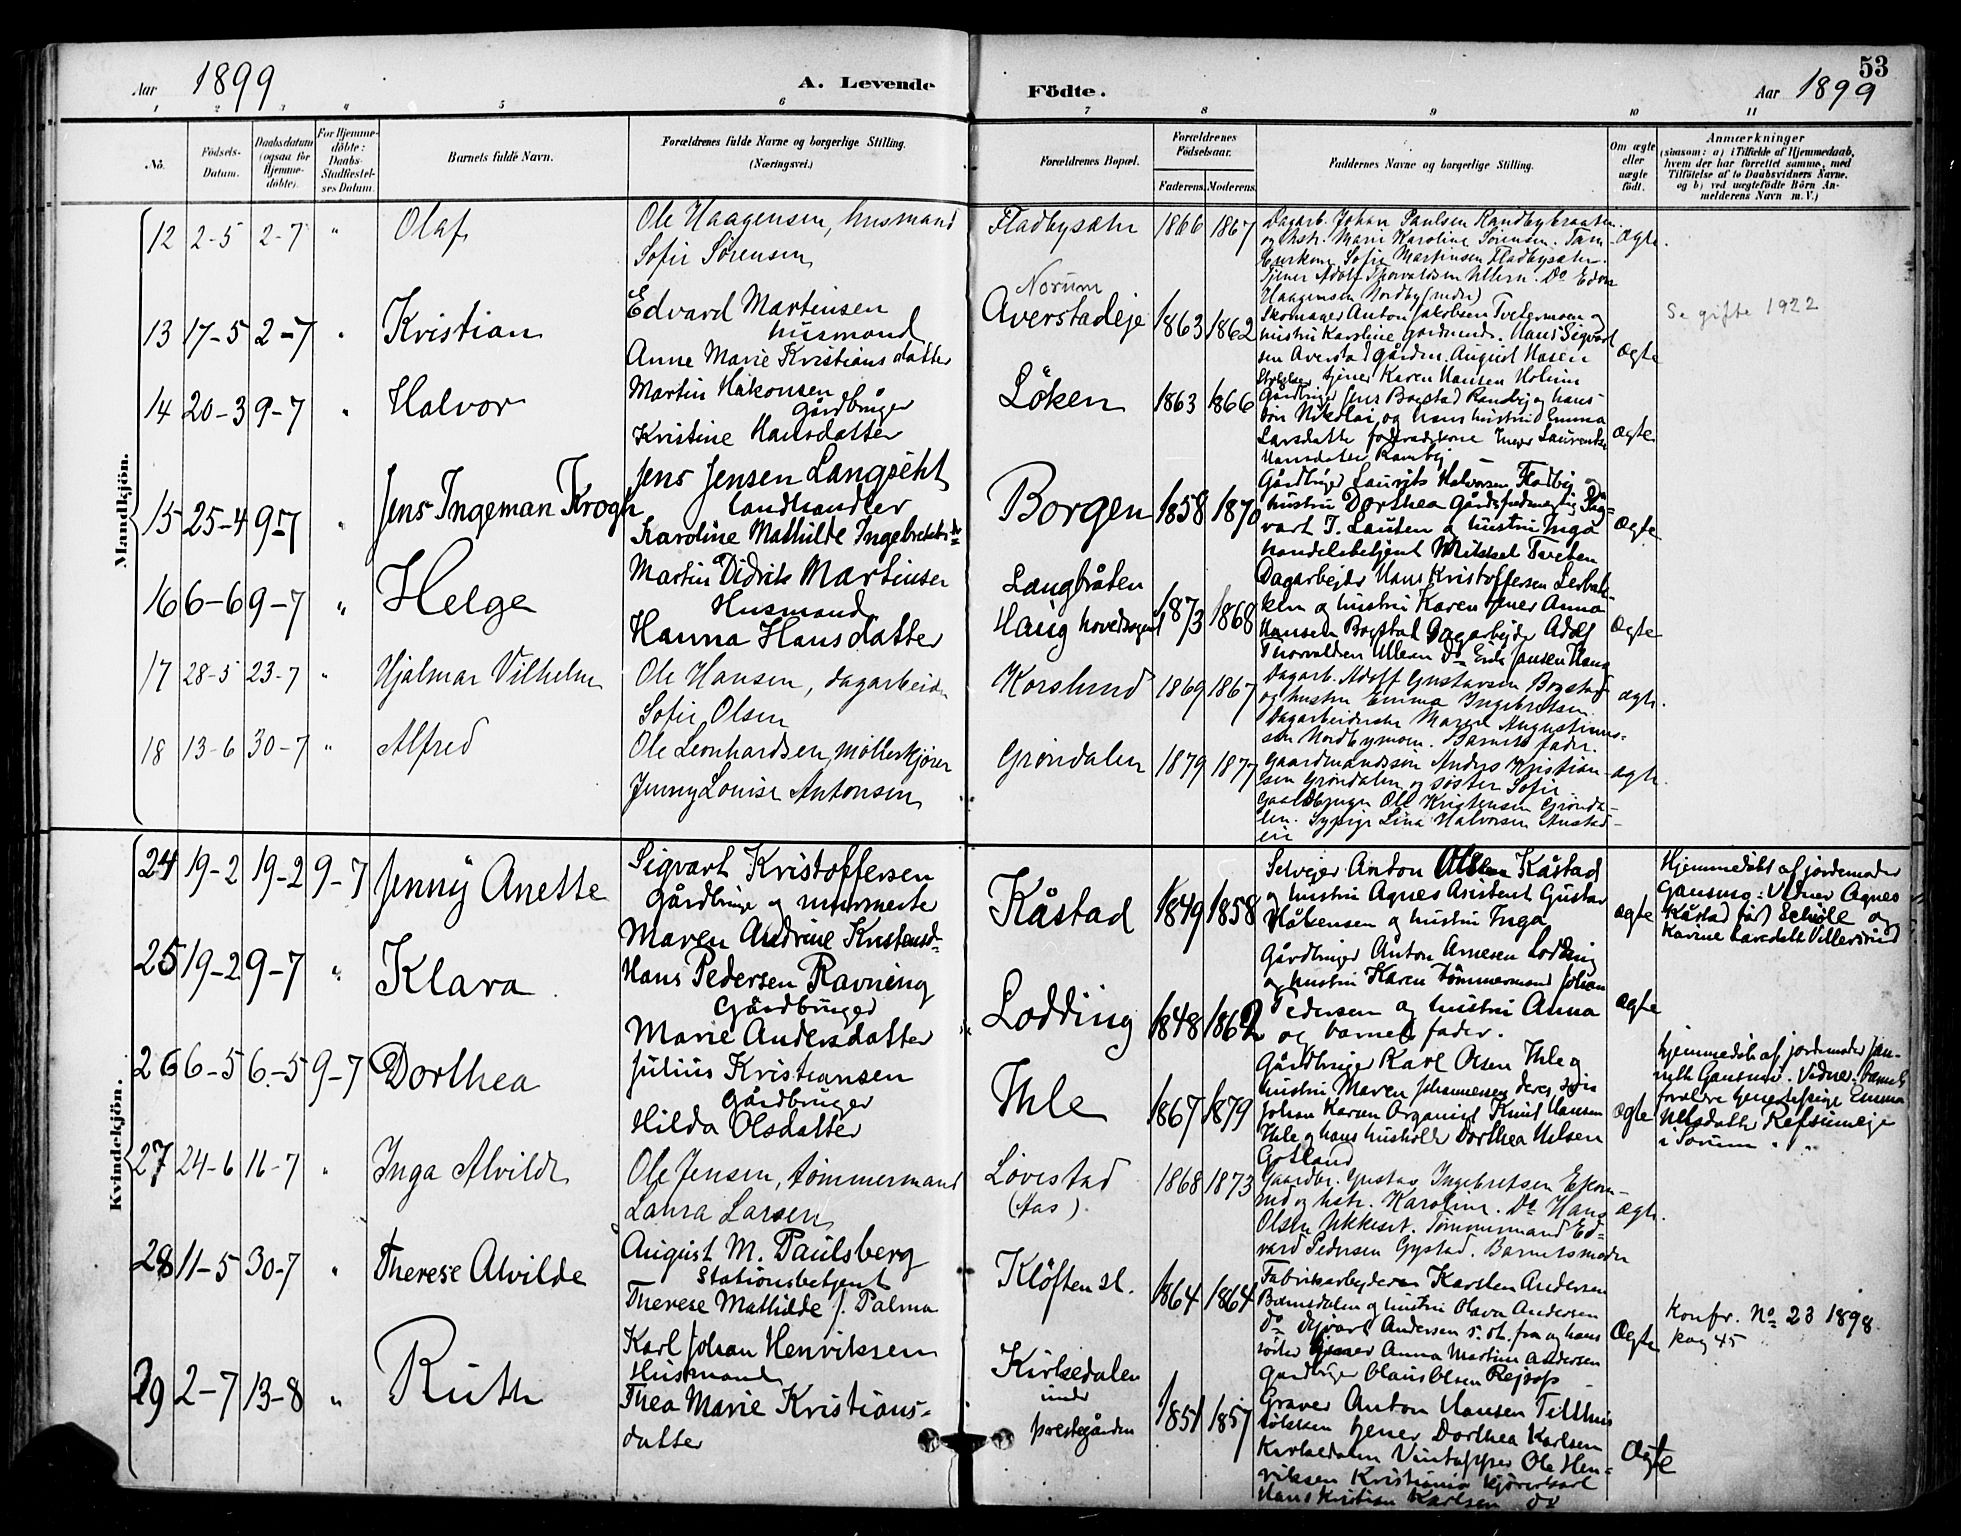 53
Aar 1899 A. Levende Födte. Aar 1899
1 2 3 4 5 6 7 8 9 10 11
No.
Födsels-
Datum.
Daabsdatum
(ogsaa for
Hjemme-
döbte).
For Hjemme-
döbte:
Daabs-
Stadfæstel-
ses Datum.
Barnets fulde Navn.
Forældrenes fulde Navne og borgerlige Stilling.
(Næringsvei.)
Forældrenes Bopæl.
Forældrenes
Födselsaar.
Faderens. Moderens.
Faddernes Navne og borgerlige Stilling.
Om ægte
eller
uægte
født.
Anmærkninger
(saasom: a) i Tilfælde af Hjemmedaab,
hvem der har forrettet samme, med
Tilföielse af to Daabsvidners Navne.
og b) ved uægtefödte Börn An-
melderens Navn m. V.)
Mandkjön.
12 2-5 2-7 " Olaf
Ole Haagensen, husmand
Sofie Sørensen
Fladbysæter 1866 1867
Dagarb. Johan Paulsen Randbybraaten
og hstr. Marie Karoline Sørensen.
Sofie Martinsen Fladbysæter.
Tjener Adolf Thorvaldsen Ullern. Do
Haagensen Nordby (nedre)
ægte.
13 17-5 2-7 " Kristian
Edvard Martinsen
husmand
Anne Marie Kristiansdatter
Norum
Averstadeje 1863 1862
Skomager Anton Jakobsen Tvetermoen og
hustru Karoline Gårdmands. Hans Sigvart
sen Averstad gården. August Hasen
tjener Karen Hansen Holum
ægte
Se gifte 1922
14 20-3 9-7 " Halvor
Martin Håkonsen
Gårdbruger
Kristine Hansdatter
Löken 1863 1866
Gårdbruger Jens Bogstad Randbi og hans
sön Nikolai og hans hustru Emma
Larsdatter Inger Laurentse
Hansdatter Rambij
ægte
15 25-4 9-7 " Jens Ingeman Krogh
Jens Jensen Langseht
landhandler
Karoline Mathilde Ingebretsd
Borgen 1858 1870
Gårdbruger Laurits Halvorsen Fladbij og
hustru Dorthea Gårdsfuldmegtig Sig-
vart J. Lauten og hustru Inga
handelsbetjent Mikkel Tveten
Ægte
16 6-6 9-7 " Helge
Martin Didrik Martinsen
Husmand
Hanna Hansdatter
Langbråten
Haug hovedsogn 1873 1868
Dagarbejder Hans Kristoffersen Lerbak-
ken og hustru Karen tjener Anna
Hansen Bogstad Dagarbejder Adolf
Thorvaldsen Ullern Do Erik Jansen Haug
Ægte
17 28-5 23-7 " Hjalmar Vilhelm
Ole Hansen, dagarbeider
Sofie Olsen
Korslund 1869 1867
Dagarb. Adolf Gustavsen Bogstad
og hustru Emma Ingebretsen.
Dagarbeiderske Maren Augustinus-
sen Nordbymoen. Barnets fader.
ægte.
18 13-6 30-7 " Alfred
Ole Leonhardsen, møllerkjører
Jenny Louise Antonsen
Grøndalen 1879 1877
Gaardmandssøn Anders Kristian-
sen Grøndalen og søster Sofie
Gaardbruger Ole Kristensen Grønda-
len. Sypige Lina Halvorsen Anstad-
eie
ægte.
Kvindekjön.
24 19-2 19-2 9-7 Jenny Anette
Sigvart Kristoffersen
Gårdbruger og murmester
Maren Andrine Kristensd
Kåstad 1849 1858
Selvejer Anton Olsen Kåstad
og hustru Agnes Asistent Gustav
Håkensen og hustru Inga
ægte
Hjemmedöbt af jordemoder
Gansmo: Vidner Agnes
Kåstad
Karine Larsdatt
25 19-2 9-7 " Klara
Hans Pedersen Ravning
Gårdbruger
Marie Andersdatter
Lodding 1848 1862
Gårdbruger Anton Arnesen Lodding
og hustru Karen tömmermand Johan
Pedersen og hustru Anna
og barnets fader.
ægte
26 6-5 6-5 9-7 Dorthea
Julius Kristiansen
Gårdbruger
Hilda Olsdatter
Ihle 1867 1879
Gårdbruger Karl Olsen Ihle og
hustru Maren Johannesen deres
Johan Karen Organist Knut Hansen
Ihle og hans husholder Dorthea Nilsen
Gotland
ægte
hjemmedöbt af jordemoder
Gansmo. Vidner: barnets
forældre Emma
Nilsdatter Refsumeje
i Sörum
27 24-6 16-7 " Inga Alvilde
Ole Jensen, tømmermand
Laura Larsen
Løvestad
(Aas). 1868 1873
Gaardbr. Gustav Ingebretsen
og hstr. Karoline. Do Hans
Olsen Tømmermand Ed-
vard Pedersen Gystad. Barnets moder
ægte.
28 11-5 30-7 " Therese Alvilde
August M. Paulsberg
Stationsbetjent
Therese Mathilde f. Palma
Klöften st. 1864 1864
Fabrikarbejderen Karsten Andersen
og hustru Olava Andersen
Do Andersen s. st. fra og hans
söster Anna Martine Andersen
Gårdbruger Olaus Olsen Rejsop
Ægte
Konfr. No 23 1898.
pag 45
29 2-7 13-8 " Ruth
Karl Johan Henriksen
Husmand
Thea Marie Kristians-
datter
Kirkedalen
under
prestegården 1851 1857
Graver Anton Hansen
tjener Dorthea Karlsen
Kirkedalen Vintapper Ole Hen-
riksen Kristiania kjörerkarl
Hans Kristian Karlsen do
Ægte